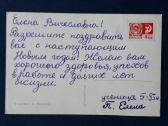 Елена Вячеславна!
Разрешите поздравить
вас с наступающим
Новым годом! Желаю вам
хорошего здоровья, успехов
в работе и долгих лет
жизни.
ученица 5-
П. Елена